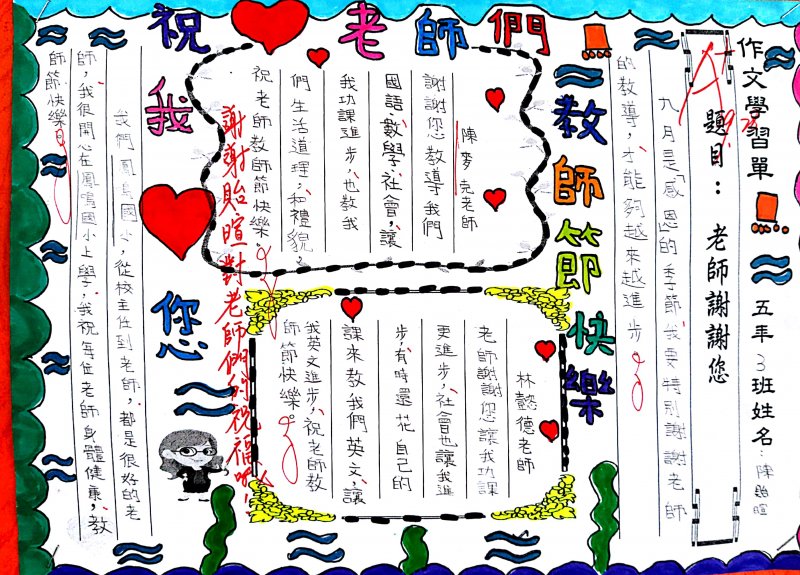 祝老師們!
教師節快樂
我
您
作文學習單!
五年3班姓名:陳貽暄
題目:老師謝謝您
A+
九月是「感恩」的季節,我要特別謝謝老師
的教導,才能夠越來越進步。
陳麥克老師
謝謝您教導我們
國語、數學、社會,讓
我功課進步,也教我
們生活道理,和禮貌。
祝老師教師節快樂。
謝謝貽暄對老師們的祝福呦!
林懿德老師
老師謝謝您讓我功課
更進步,社會也讓我進
步,有時還花自己的
課來教我們英文,讓
我英文進步,祝老師教
師節快樂。
我們鳳鳴國小,從校主任到老師,都是很好的老
師,我很開心在鳳鳴國小上學,我祝每位老師身體健康,教
師節快樂。